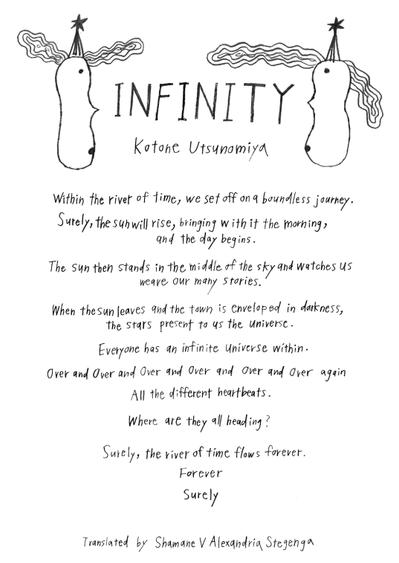 INFINITY
Kotone Utsunomiya
Within the river of time, we set off on a boundless journey.
Surely, the sun will rise, bringing with it the morning,
and the day begins.
The sun then stands in the middle of the sky and watches us
weave our many stories.
When the sun leaves and the town is enveloped in darkness,
the stars present to us the universe.
Everyone has an infinite universe within.
Over and Over and Over and Over and Over and Over again
All the different heartbeats.
Where are they all heading?
Surely, the river of time flows forever.
Forever
Surely
Translated by Shamane V Alexandria Stegenga